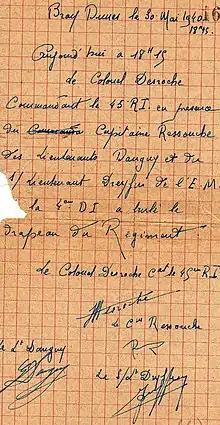 Bray Dunes le 30 Mai 1940
18H15
Aujourd'hui à 18H15
le Colonel Desroche
Commandant le 45 RI. en présence
du Capitaine Ressouche
des Lieutenants Dauguy et du
S/ Lieutenant Dreyfus de l'E.M.
la 4eme DI a brulé le
drapeau du Régiment
le Colonel Desroche Cdt le 45eme RI
Desroche
le Cne Ressouche
le Lt Dauguy
le S/Lt Dreyfus